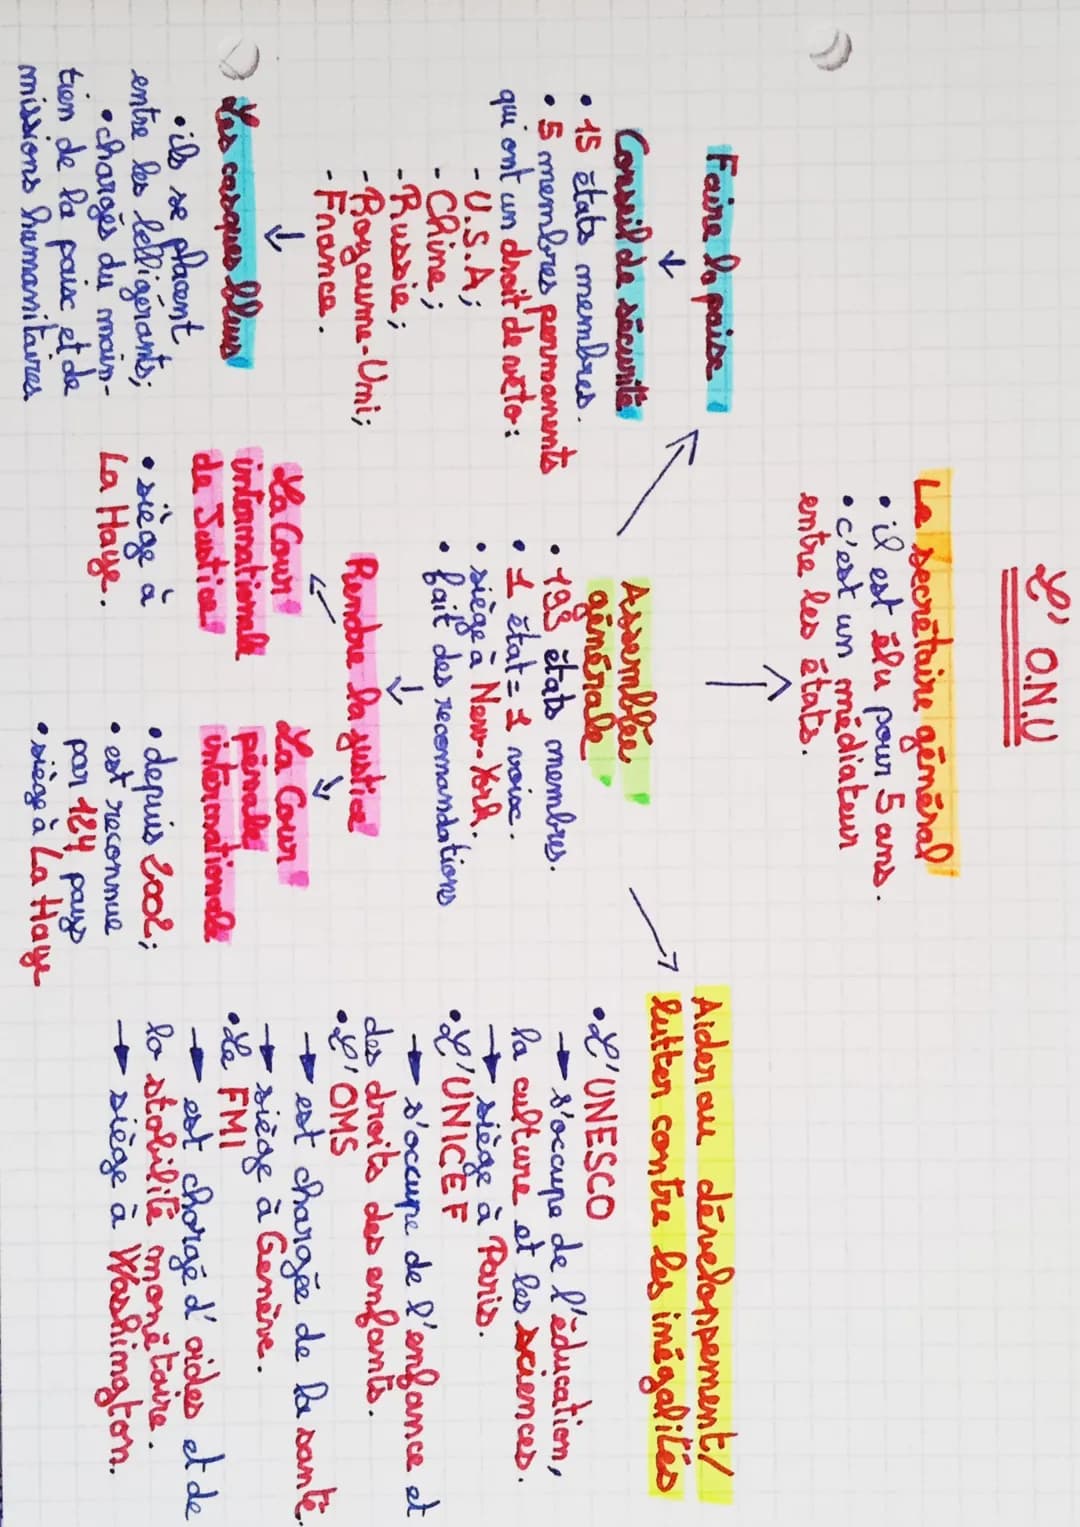 L'O.N.U
Le secrétaire général
• il est élu pour 5 ans.
• c'est un médiateur
entre les états.
Faire la paix
Conseil de sécurité
• 15 états membres.
• 5 membres permanents
qui ont un droit de veto :
- U.S.A ;
- Chine ;
- Russie ;
- Royaume-Uni ;
- France.
Les casques bleus
• ils se placent
entre les belligérants ;
• chargés du main-
tien de la paix et de
missions humanitaires
Assemblée
générale
• 193 états membres.
• 1 état = 1 voix.
• siège à New-York.
• fait des recommandations
Rendre la justice
La Cour
internationale
de Justice
• siège à
La Haye.
La Cour
pénale
internationale
• depuis 2002 ;
• est reconnue
par 124 pays
• siège à La Haye
Aider au développement/
lutter contre les inégalités
• L'UNESCO
→ s'occupe de l'éducation,
la culture et les sciences.
→ siège à Paris.
• L'UNICEF
→ s'occupe de l'enfance et
des droits des enfants.
• L'OMS
→ est chargée de la santé.
→ siège à Genève.
• Le FMI
→ est chargé d'aides et de
la stabilité monétaire.
→ siège à Washington.